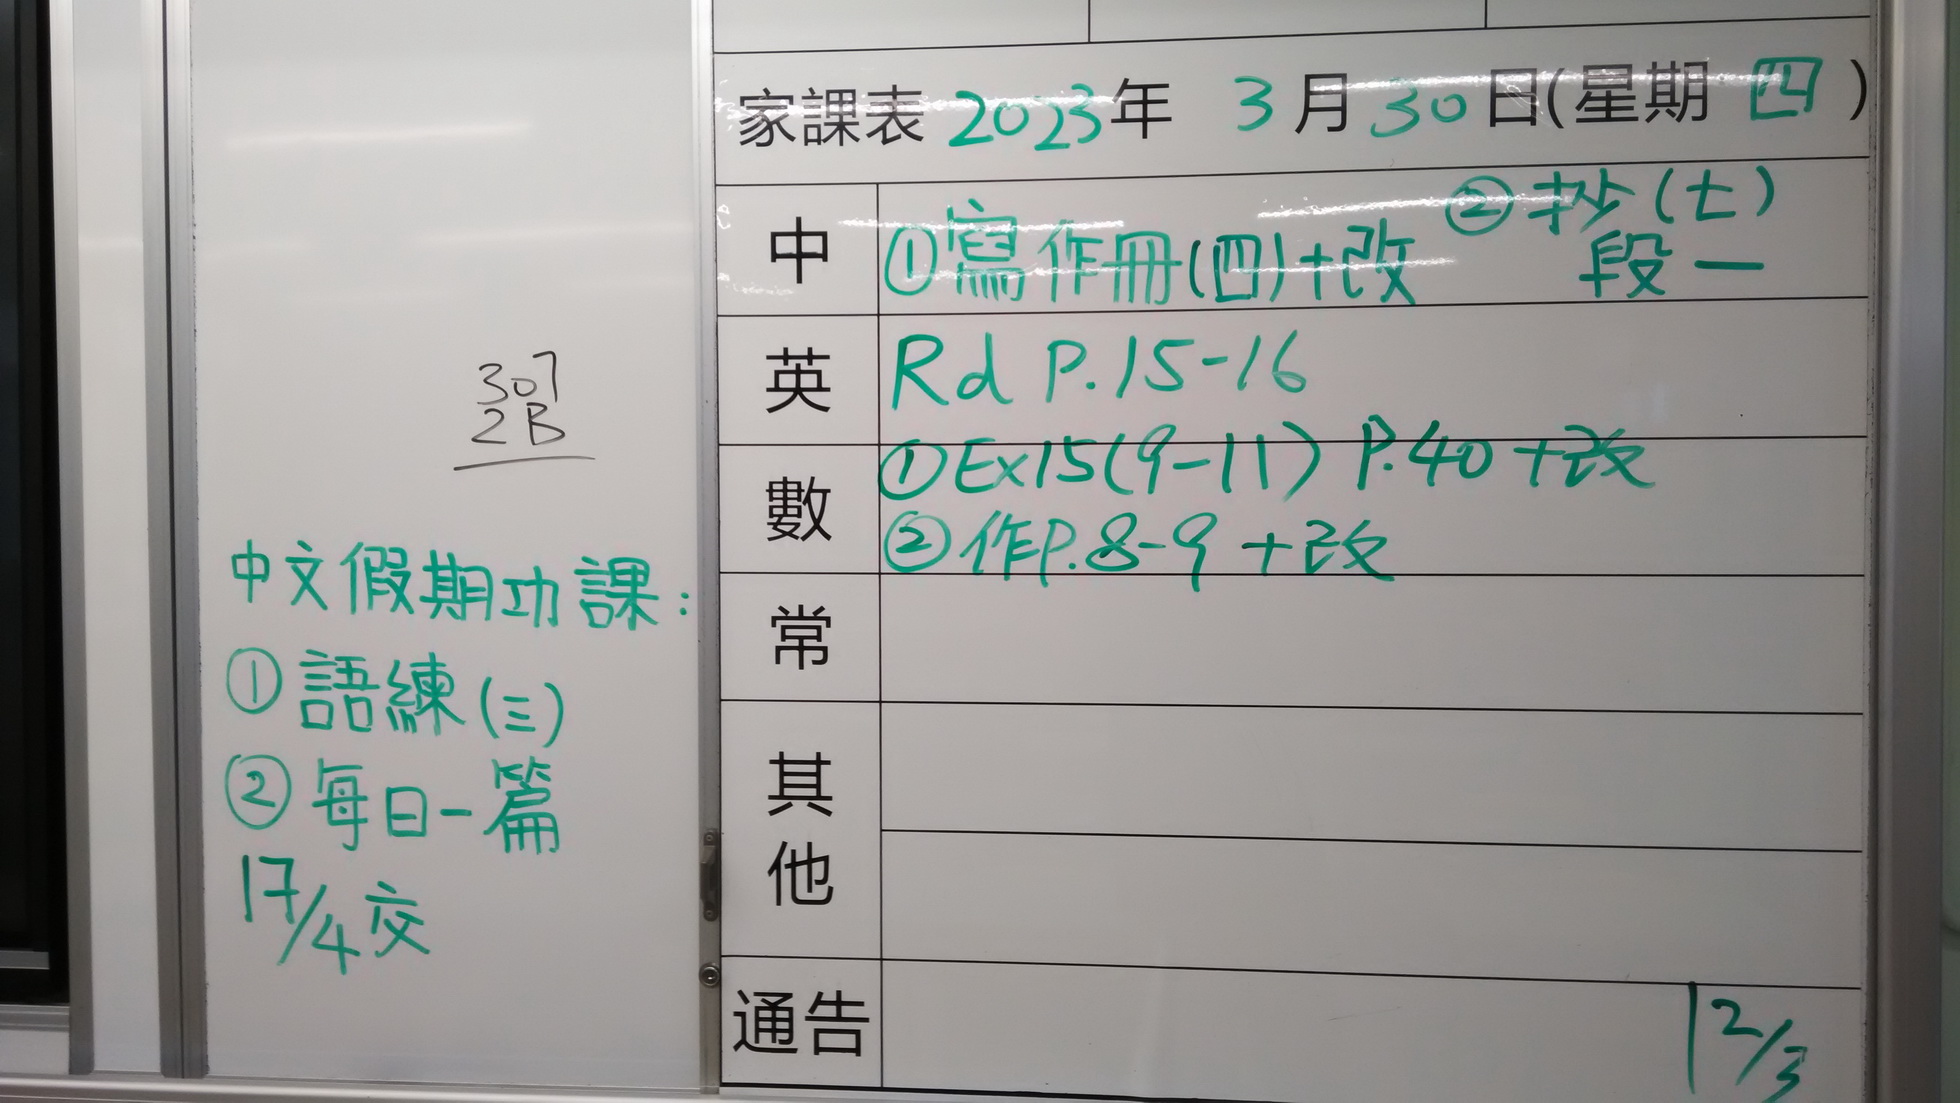 307
2B
中文假期功課：
① 語練(三)
② 每日一篇
17/4交
家課表 2023年 3月30日(星期 四 )
中 ①寫作冊(四)+改 ②抄(七)
段一
英 Rd P.15-16
數 ①Ex15(9-11) P.40 +改
②作P.8-9 +改
常
其他
通告
12/3